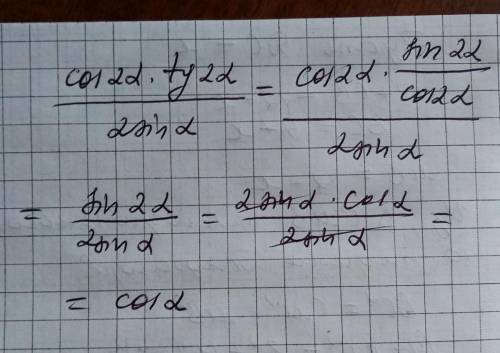 cos2α · tg2α / 2sinα = cos2α · sin2α/cos2α / 2sinα
= sin2α / 2sinα = 2sinα · cosα / 2sinα =
= cosα